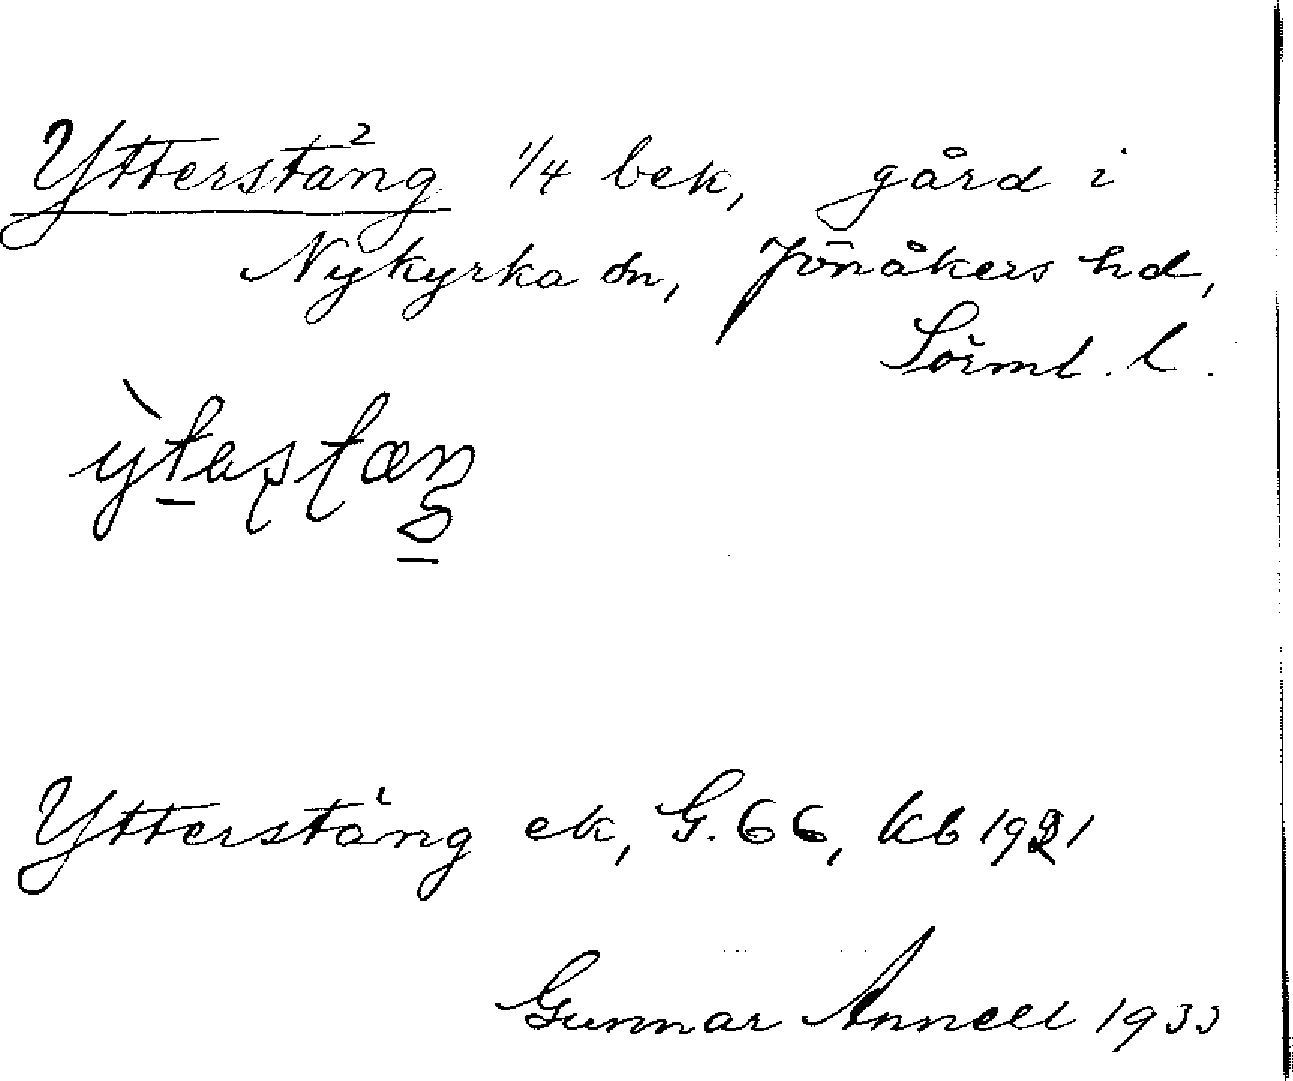 Ytterstäng 1/4 bek, gård i
Nykyrka sn, Jönåkers hd,
Sörml. l.
Ytterstäng ek, G. 66, kb 1921
Gunnar Annell 1933